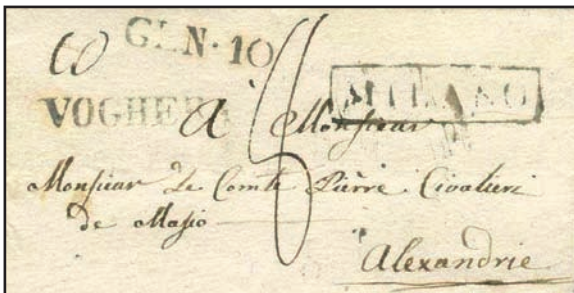 GEN·10
VOGHERA
MILANO
A Monsieur
Monsieur Le Comte Pierre Civalieri
de Masio
Alexandrie